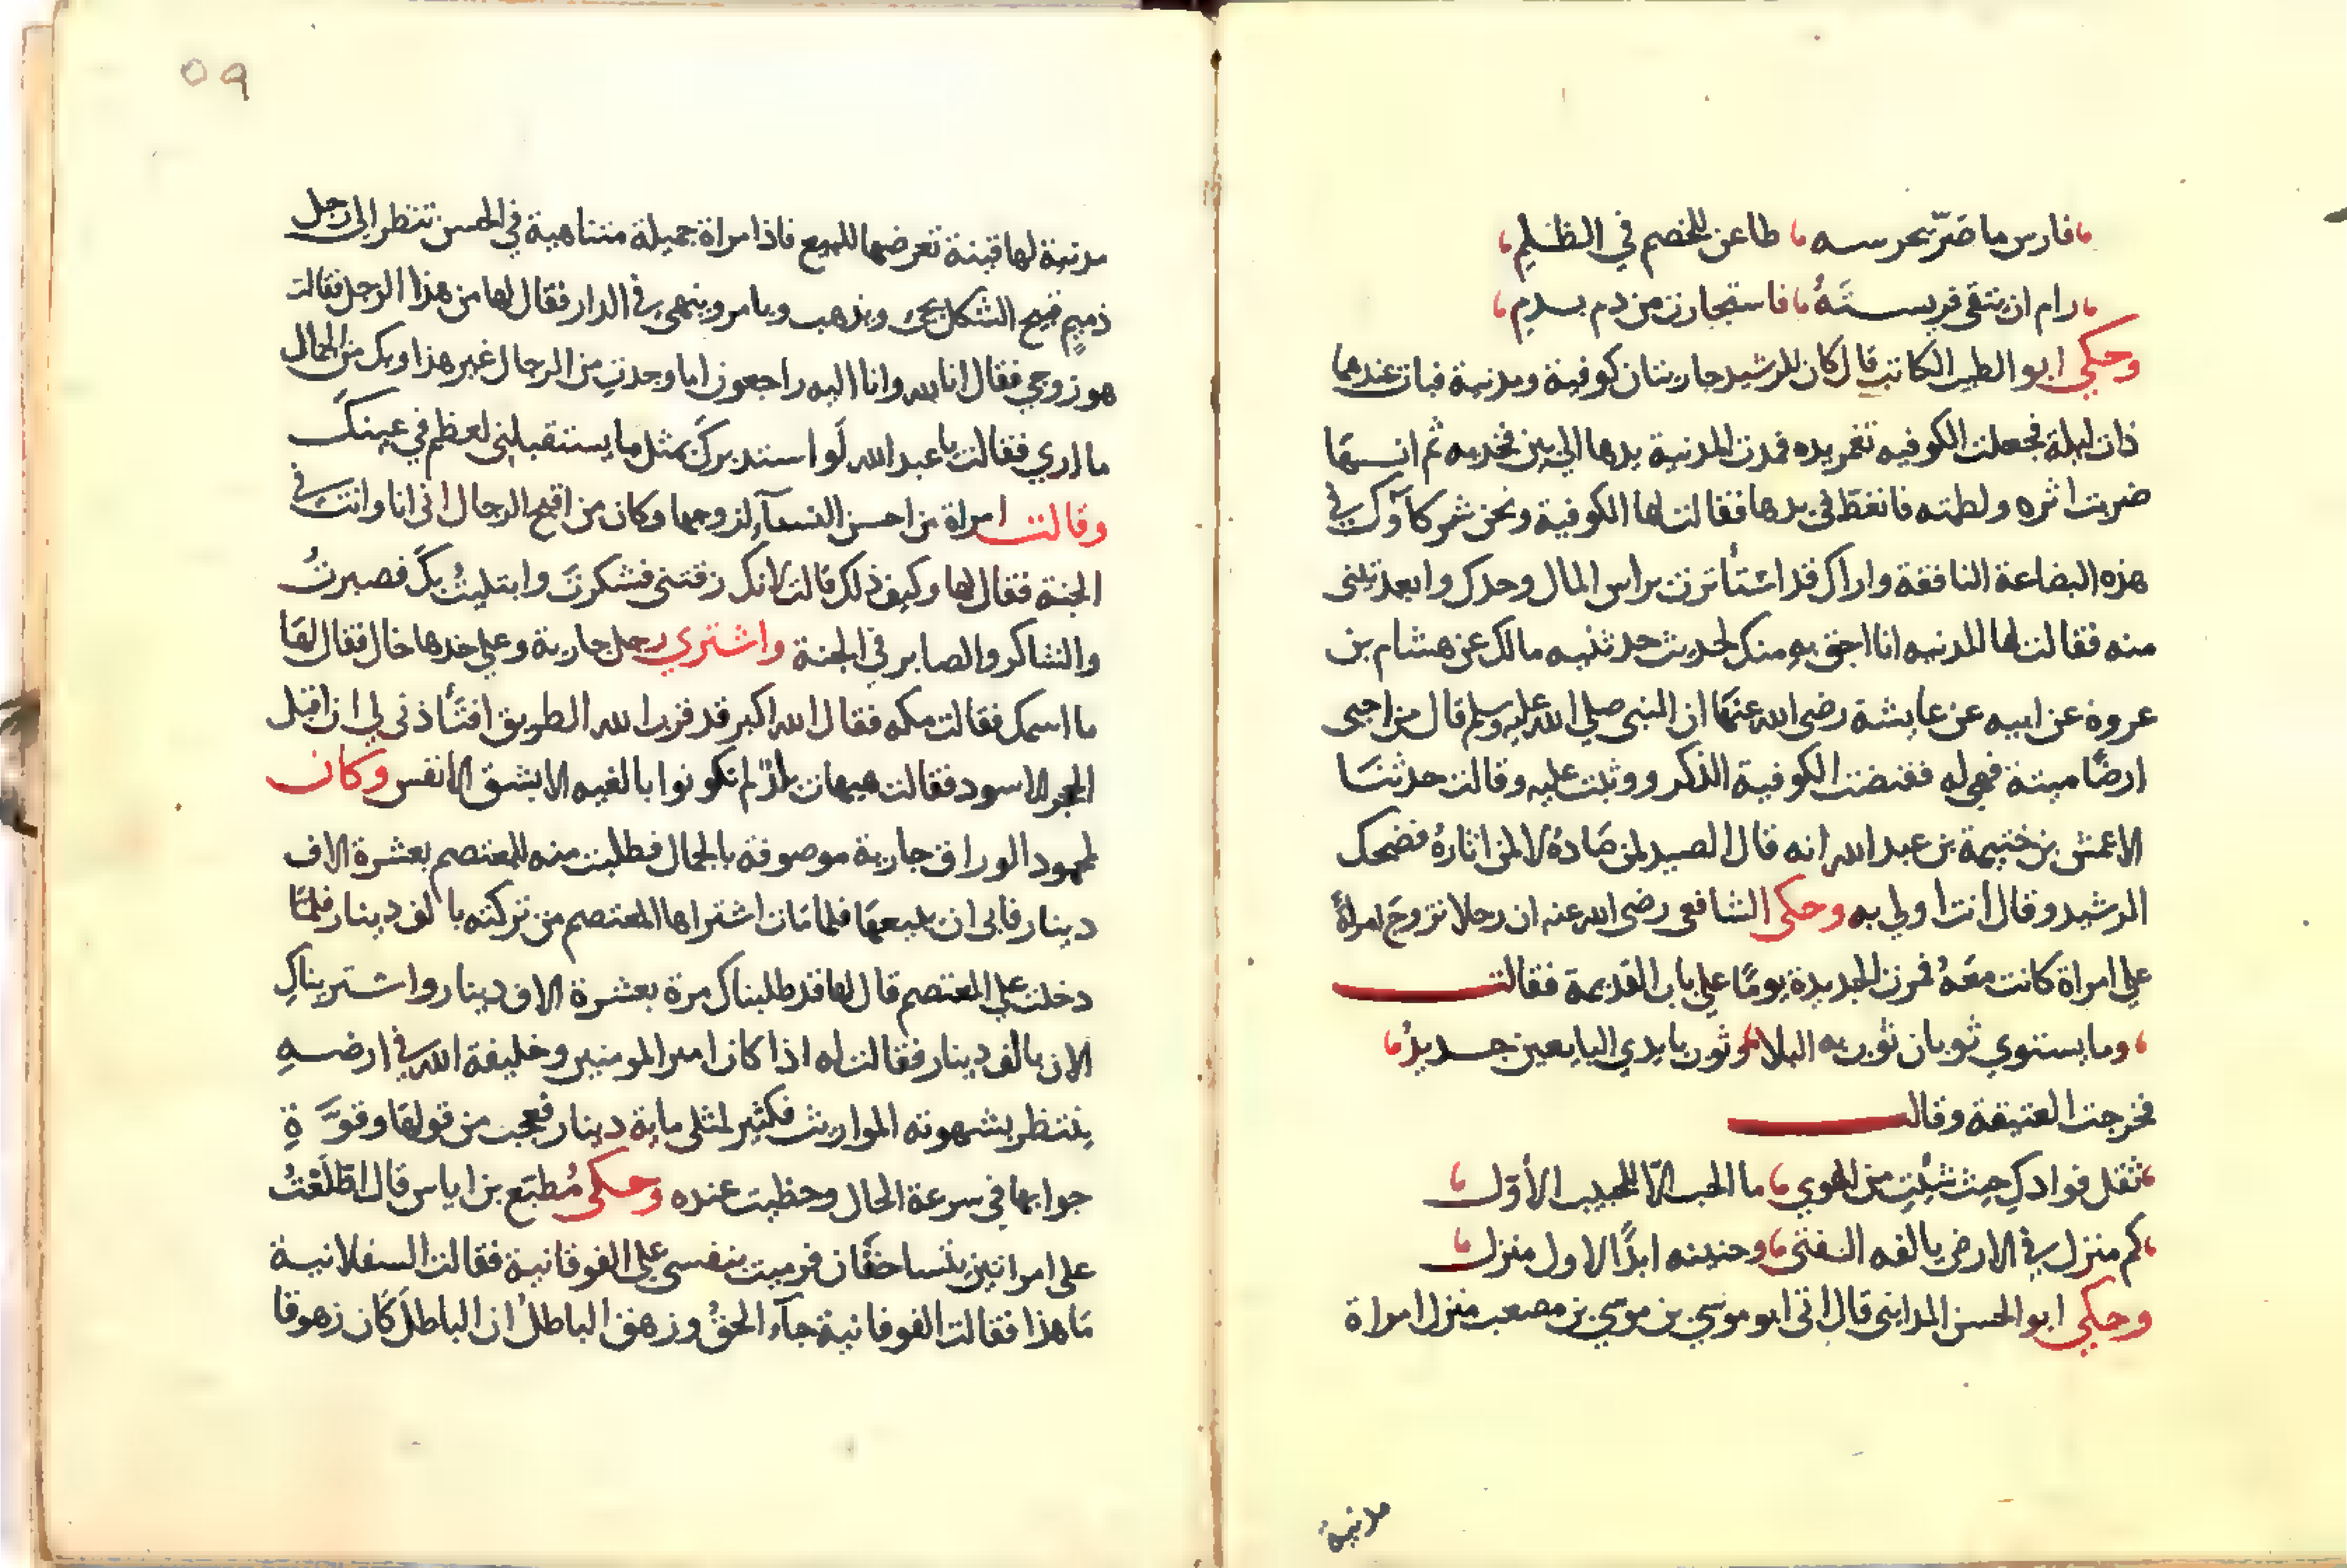 فارس ما ضرّ بحرسه طاعن للخصم في الظلم
رام ان يتقي فريسته فاستجارت من دم بدم
وحكي ابو الطيب الكاتب قال كان للرشيد جاريتان كوفية ومدنية فبات عندهما
ذات ليلة فجعلت الكوفيه تغمز يده فمدت المدنية يدها الي بين فخديه ثم انسها
ضربت اثره ولطمته فانغظ في يدها فقالت لها الكوفية ونحن شركاؤك في
هذه البضاعة النافقة واراك قد استأثرت براس المال وحدك وابعدتيني
منه فقالت لها المدنيه انا احق به منك لحديث حدثنيه مالك عن هشام بن
عروة عن ابيه عن عايشة رضي الله عنها ان النبي صلي الله عليه وسلم قال من احيي
ارضًا ميتة فهي له فقبضت الكوفية الذكر ووثبت عليه وقالت حدثنا
الاعمش بن خثيمة بن عبد الله انه قال الصيد لمن صاده لا لمن اثاره فضحك
الرشيد وقال انت اولي به وحكي الشافعي رضي الله عنه ان رجلا تزوج امراة
علي امراة كانت معه فمرت الجديدة يومًا علي باب القديمة فقالت
وما يستوي ثوبان ثوب به البلا وثوب بايدي البايعين جديد
فخرجت العتيقة وقالت
نقل فوادك حيث شئت من الهوي ما الحب الّا للحبيب الأول
كم منزل في الارض يالفه الفتي وحنينه ابدًا لاول منزل
وحكي ابو الحسن المدايني قال اتي ابو موسي بن موسي بن مصعب منزل امراة
مدنية
٥٩
مدنية لها قينة تعرضها للبيع فاذا امراة جميلة متناهية في الحسن تنظر الي رجل
ذميم قبيح الشكل يجئ ويذهب ويامر وينهي في الدار فقال لها من هذا الرجل فقالت
هو زوجي فقال انا لله وانا اليه راجعون اما وجدت من الرجال غير هذا وبك من الجمال
ما اري فقالت يا عبد الله لو استدبرك بمثل ما يستقبلني لعظم في عينك
وقالت امراة من احسن النسآء لزوجها وكان من اقبح الرجال اني انا وانت في
الجنة فقال لها وكيف ذلك قالت لانك رزقتني فشكرت وابتليت بك فصبرت
والشاكر والصابر في الجنة واشتري رجل جارية وعلي خدها خال فقال لها
ما اسمك فقالت مكه فقال الله اكبر قد قرب الله الطريق افتأذني لي ان اقبل
الحجر الاسود فقالت هيهات بلد لم تكونوا بالغيه الا بشق الانفس وكان
لمحمود الوراق جارية موصوفة بالجمال فطلبت منه للمعتصم بعشرة الاف
دينار فابي ان يبيعها فلما مات اشتراها المعتصم من تركته بالف دينار فلمّا
دخلت علي المعتصم قال لها قد طلبناك مرة بعشرة الاف دينار واشتريناك
الان بالف دينار فقالت له اذا كان امير المومنين وخليفة الله في ارضه
ينتظر بشهوته المواريث فكثير لمثلي ماية دينار فعجب من قولها وقوّة
جوابها في سرعة الحال وحظيت عنده وحكي مُطيع بن اياس قال اطّلعت
علي امراتين يتساحقان فرميت بنفسي علي الفوقانية فقالت السفلانية
ما هذا فقالت الفوقانية جآء الحق وزهق الباطل ان الباطل كان زهوقا